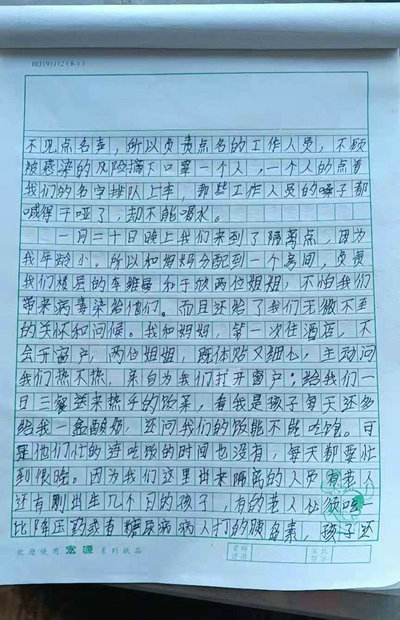 103191112(8-1)
不见点名声，所以负责点名的工作人员，不顾
被感染的风险摘下口罩一个人，一个人的点着
我们的名字排队上车，那些工作人员的嗓子都
喊得干哑了，却不能喝水。
一月二十日晚上我们来到了隔离点，因为
我年龄小，所以和妈妈分配到一个房间，负责
我们楼层的车雅和于欣两位姐姐，不怕我们
带来病毒染给他们。而且还给了我们无微不至
的关怀和问候。我和妈妈，第一次住酒店，不
会开窗户，两位姐姐，既体贴又细心，主动问
我们热不热，亲自为我们打开窗户；给我们一
日三餐送来热乎的饭菜，看我是孩子每天还多
给我一盒酸奶，还问我们的饭能不能吃饱。可
是他们忙的连吃饭的时间也没有，每天都要忙
到很晚。因为我们这里出来隔离的人员有老人
还有刚出生几个月的孩子，有的老人必须吃一
比降压药或者糖尿病病人打的胰岛素，孩子还
欢迎使用 宏源 系列纸品
老师
评语
家长
签字